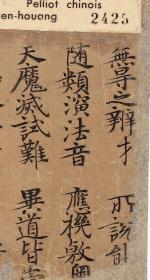 Pelliot chinois
en-houang
2425
無㝵之辯才 所說
随類演法音 應機敷
天魔咸試難 異道皆